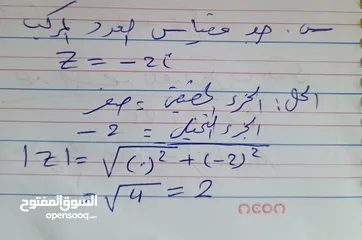 س. جد مقياس العدد المركب
Z = -2i
الحل: الجزء الحقيقي = صفر
الجزء التخيلي = -2
|Z| = √(٠)² + (-2)²
= √4 = 2
السوق المفتوح
opensooq.com
neon